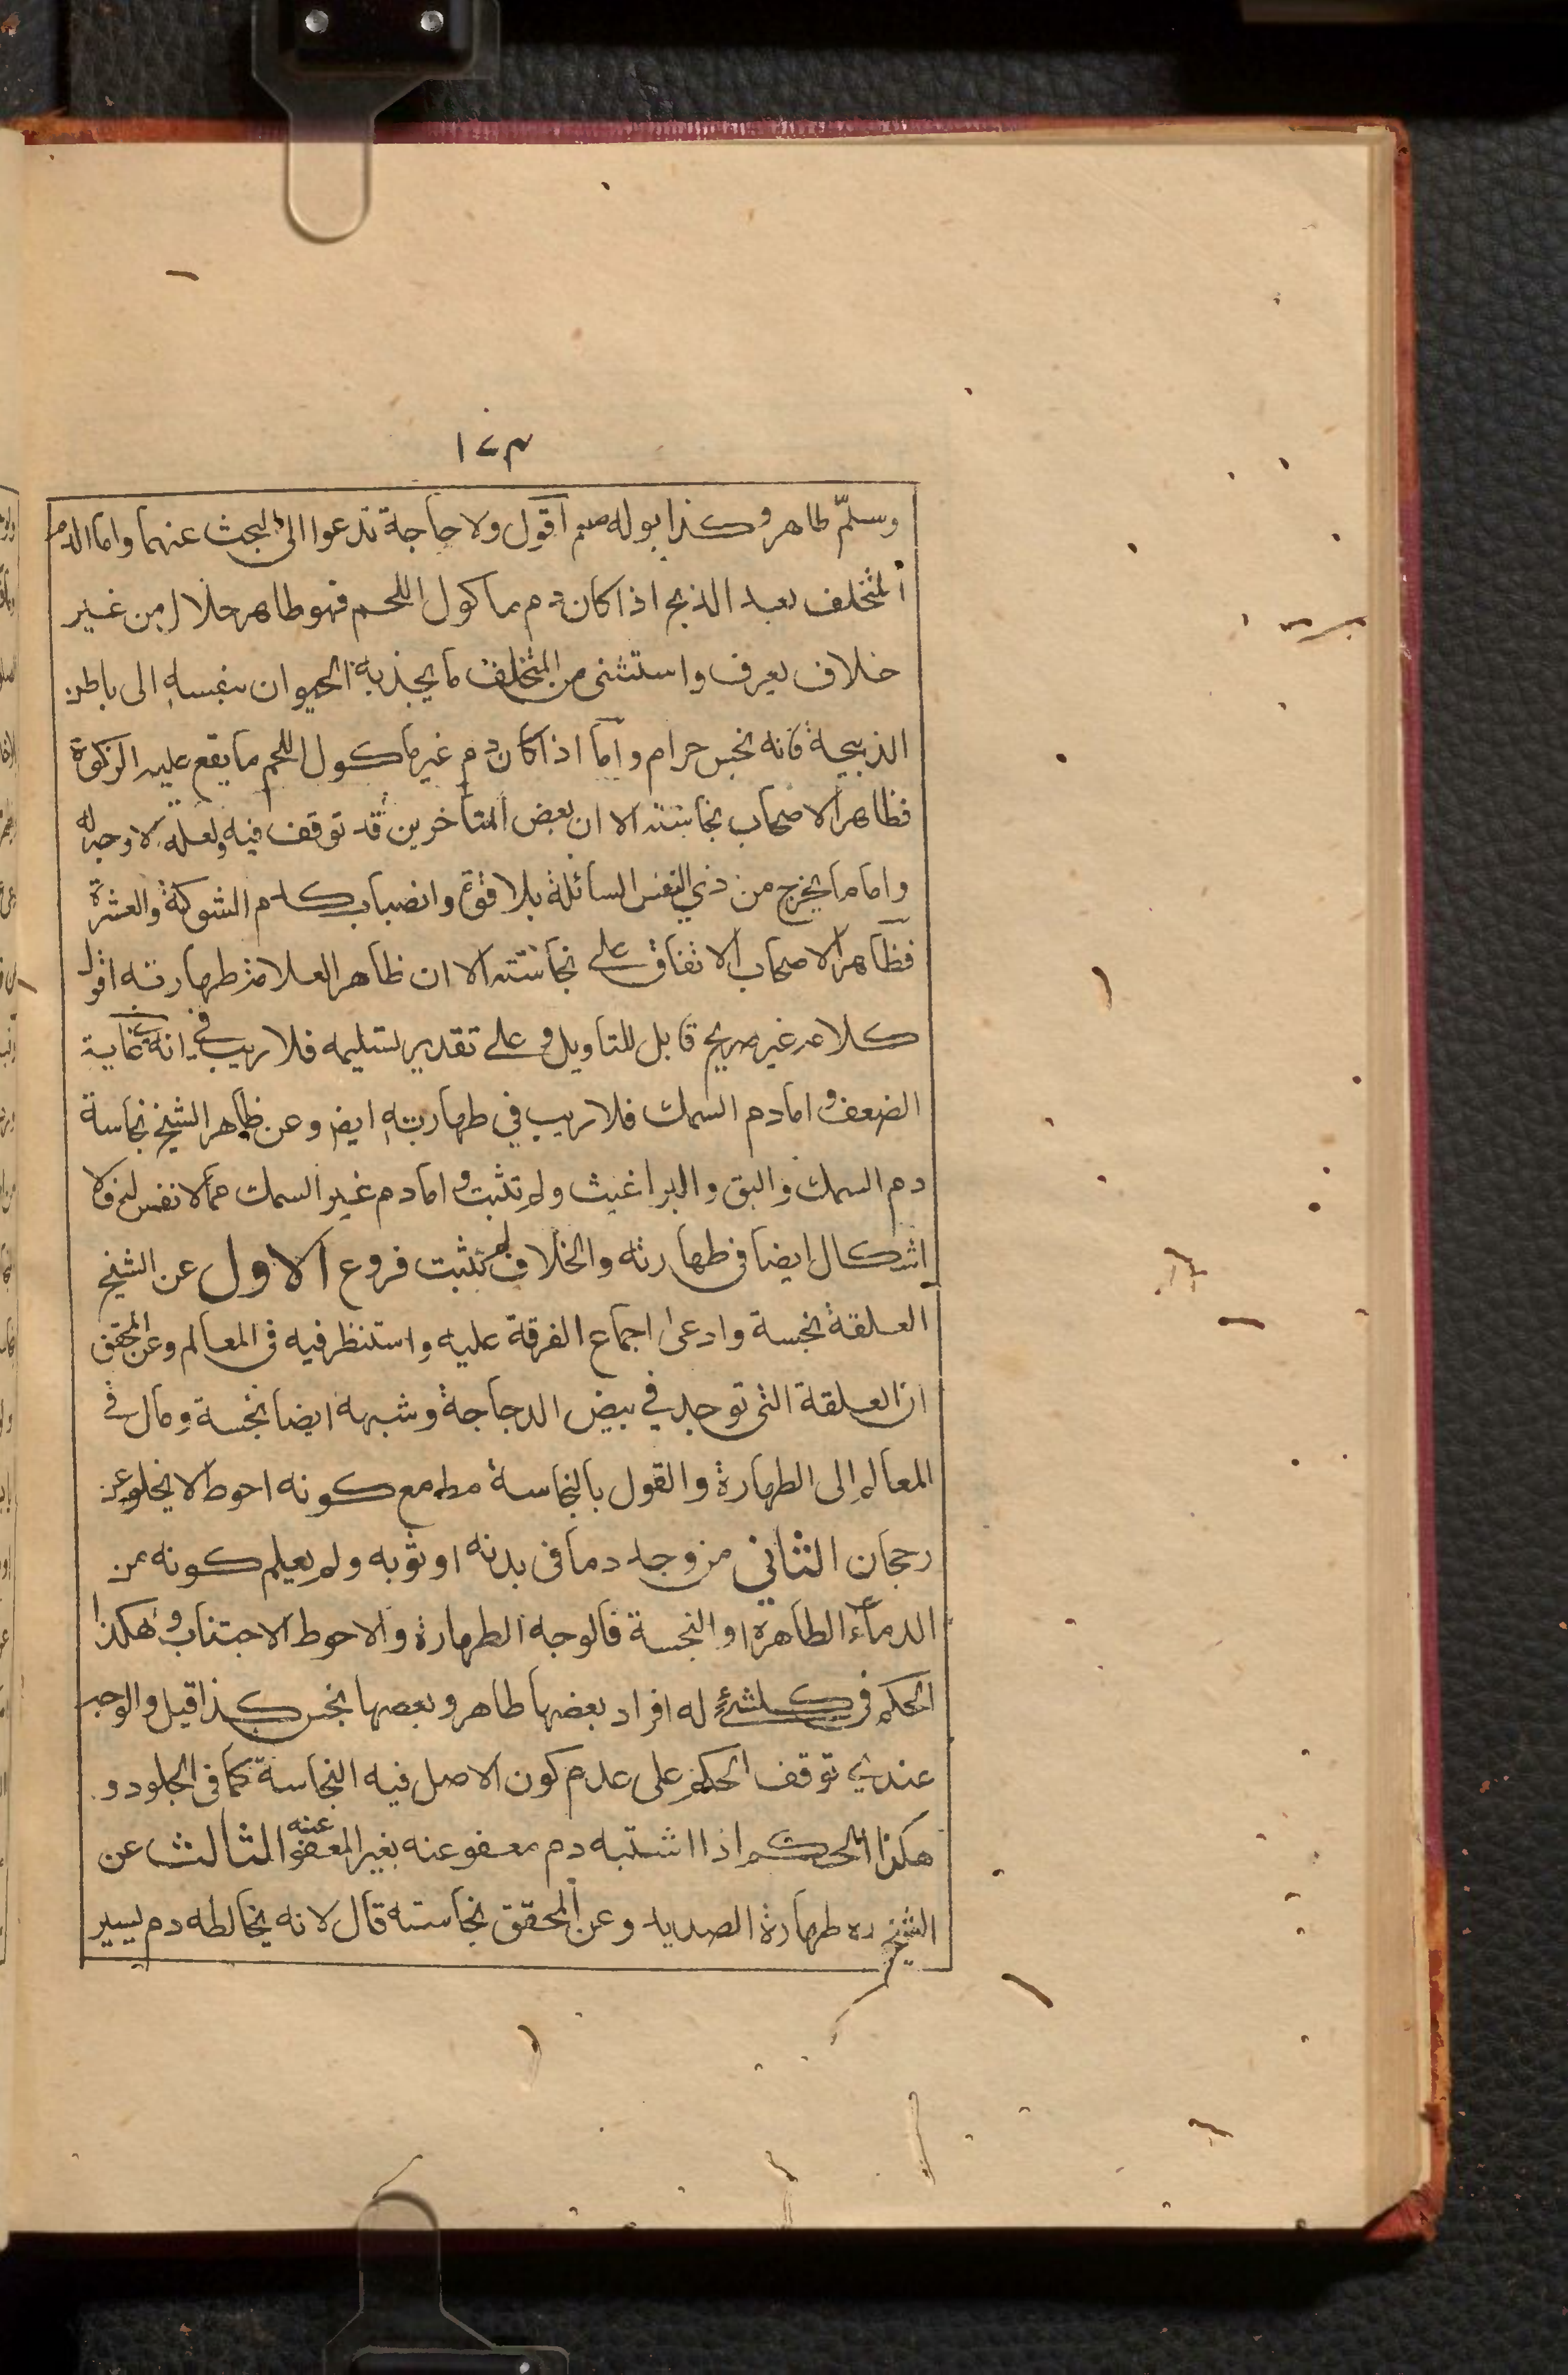 ١٧٣
وسلم طاهر وكذا بوله صلعم اقول ولا حاجة تدعوا الى البحث عنهما واما الدم
المتخلف بعد الذبح اذا كان دم ماكول اللحم فهو طاهر حلال من غير
خلاف يعرف واستثنى من المتخلف ما يجذبه الحيوان بنفسه الى باطن
الذبيحة فانه نجس حرام واما اذا كان دم غير ماكول اللحم ما يقع عليه الزكوة
فظاهر الاصحاب نجاسته الا ان بعض المتأخرين قد توقف فيه ولعله لا وجه له
واما ما يخرج من ذي النفس السائلة بلا قوة وانصباب كدم الشوكة والعشرة
فظاهر الاصحاب الاتفاق على نجاسته الا ان ظاهر العلامة طهارته اقول
كلامه غير صريح قابل للتاويل وعلى تقدير تسليمه فلا ريب في انه في غاية
الضعف واما دم السمك فلا ريب في طهارته ايضا وعن ظاهر الشيخ نجاسة
دم السمك والبق والبراغيث ولم تثبت واما دم غير السمك مما لا نفس له فلا
اشكال ايضا في طهارته والخلاف لم تثبت فروع الاول عن الشيخ
العلقة نجسة وادعى اجماع الفرقة عليه واستنظر فيه في المعالم وعن المحقق
ان العلقة التى توجد في بيض الدجاجة وشبهه ايضا نجسة ومال في
المعالم الى الطهارة والقول بالنجاسة مطه مع كونه احوط لا يخلو عن
رجحان الثاني من وجد دما في بدنه او ثوبه ولم يعلم كونه من
الدماء الطاهرة او النجسة فالوجه الطهارة والاحوط الاجتناب وهكذا
الحكم في كلشئ له افراد بعضها طاهر وبعضها نجس كذا قيل والوجه
عندي توقف الحكم على عدم كون الاصل فيه النجاسة كما في الجلود و
هكذا الحكم اذا اشتبه دم معفو عنه بغير المعفو عنه الثالث عن
الشيخ ره طهارة الصديد وعن المحقق نجاسته قال لانه يخالطه دم يسير